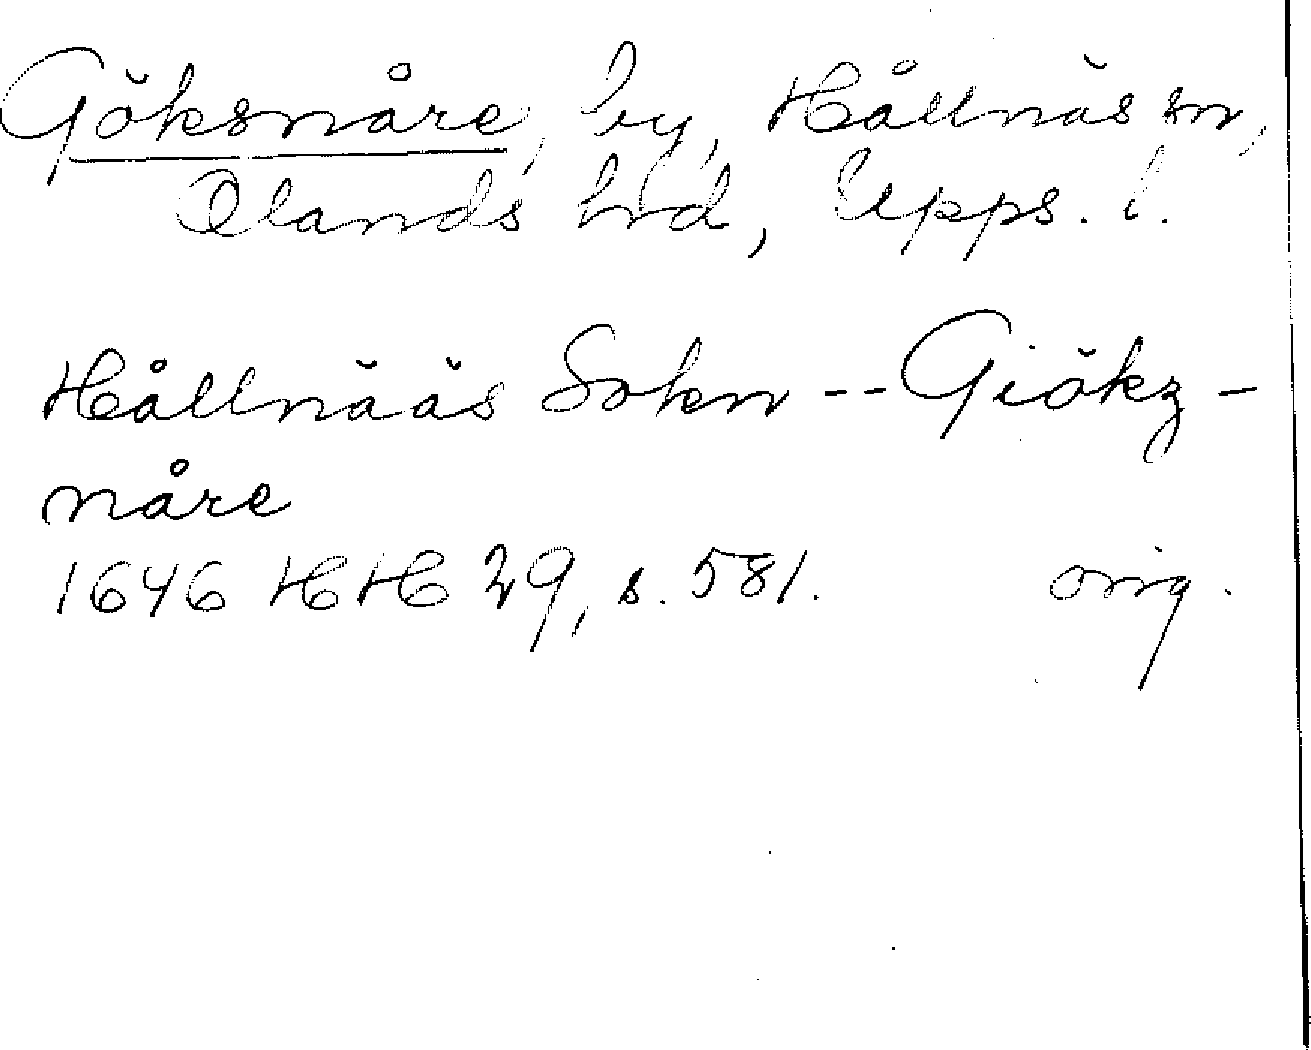 Göksnåre, by, Hållnäs sn,
Olands hrd, Upps. l.
Hållnääs Sokn -- Giökz-
nåre
1646 HH 29, s. 581. orig.